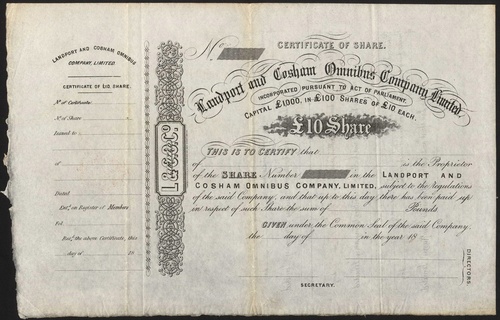 LANDPORT AND COSHAM OMNIBUS
COMPANY, LIMITED.
CERTIFICATE OF £10. SHARE.
No. of Certificate
No. of Share
Issued to
of
Dated
Ent,, on Register of Members
Fol
Rec,, the above Certificate, this
day of 18
L & C. O. Co.
No.
CERTIFICATE OF SHARE.
Landport and Cosham Omnibus Company Limited.
INCORPORATED PURSUANT TO ACT OF PARLIAMENT.
CAPITAL £1000. IN £100 SHARES OF £10 EACH.
£10 Share
THIS IS TO CERTIFY that
of is the Proprietor
of the SHARE Number in the LANDPORT AND
COSHAM OMNIBUS COMPANY, LIMITED, subject to the regulations
of the said Company, and that up to this day there has been paid up
in respect of such Share the sum of Pounds
GIVEN under the Common Seal of the said Company
the day of in the year 18
DIRECTORS.
SECRETARY.